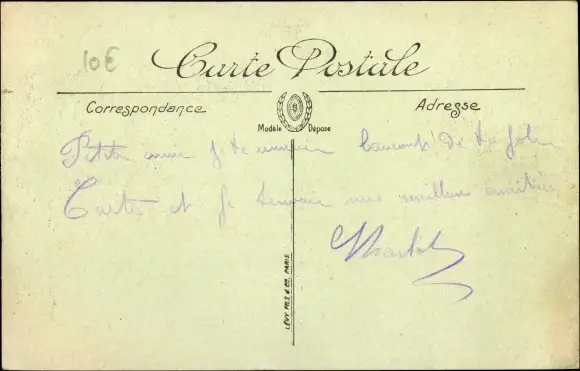 10€
Carte Postale
Correspondance
Adresse
Modèle Déposé
Petite amie je te remercie beaucoup de ta jolie
Carte et je t'envoie mes meilleures amitiés
LÉVY FILS & Cie. PARIS